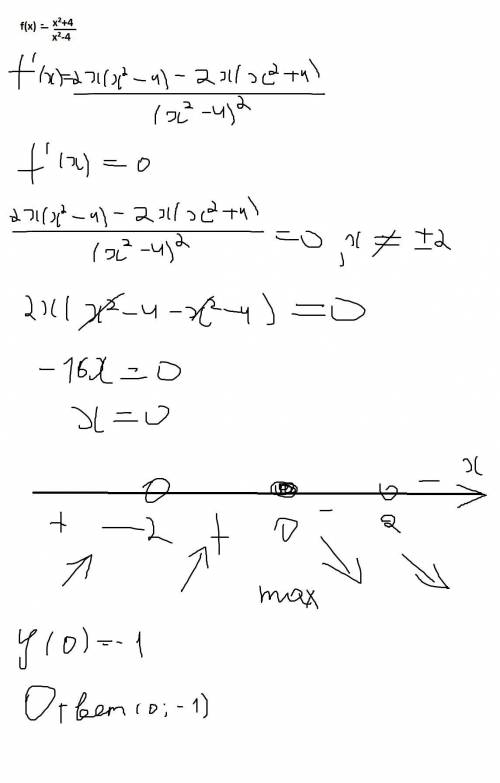 f(x) = x²+4 / x²-4
f'(x) = 2x(x²-4) - 2x(x²+4) / (x²-4)²
f'(x) = 0
2x(x²-4) - 2x(x²+4) / (x²-4)² = 0, x ≠ ±2
2x(x²-4-x²-4) = 0
-16x = 0
x = 0
- x
+ -2 + 0 - 2
max
y(0) = -1
Ответ (0; -1)